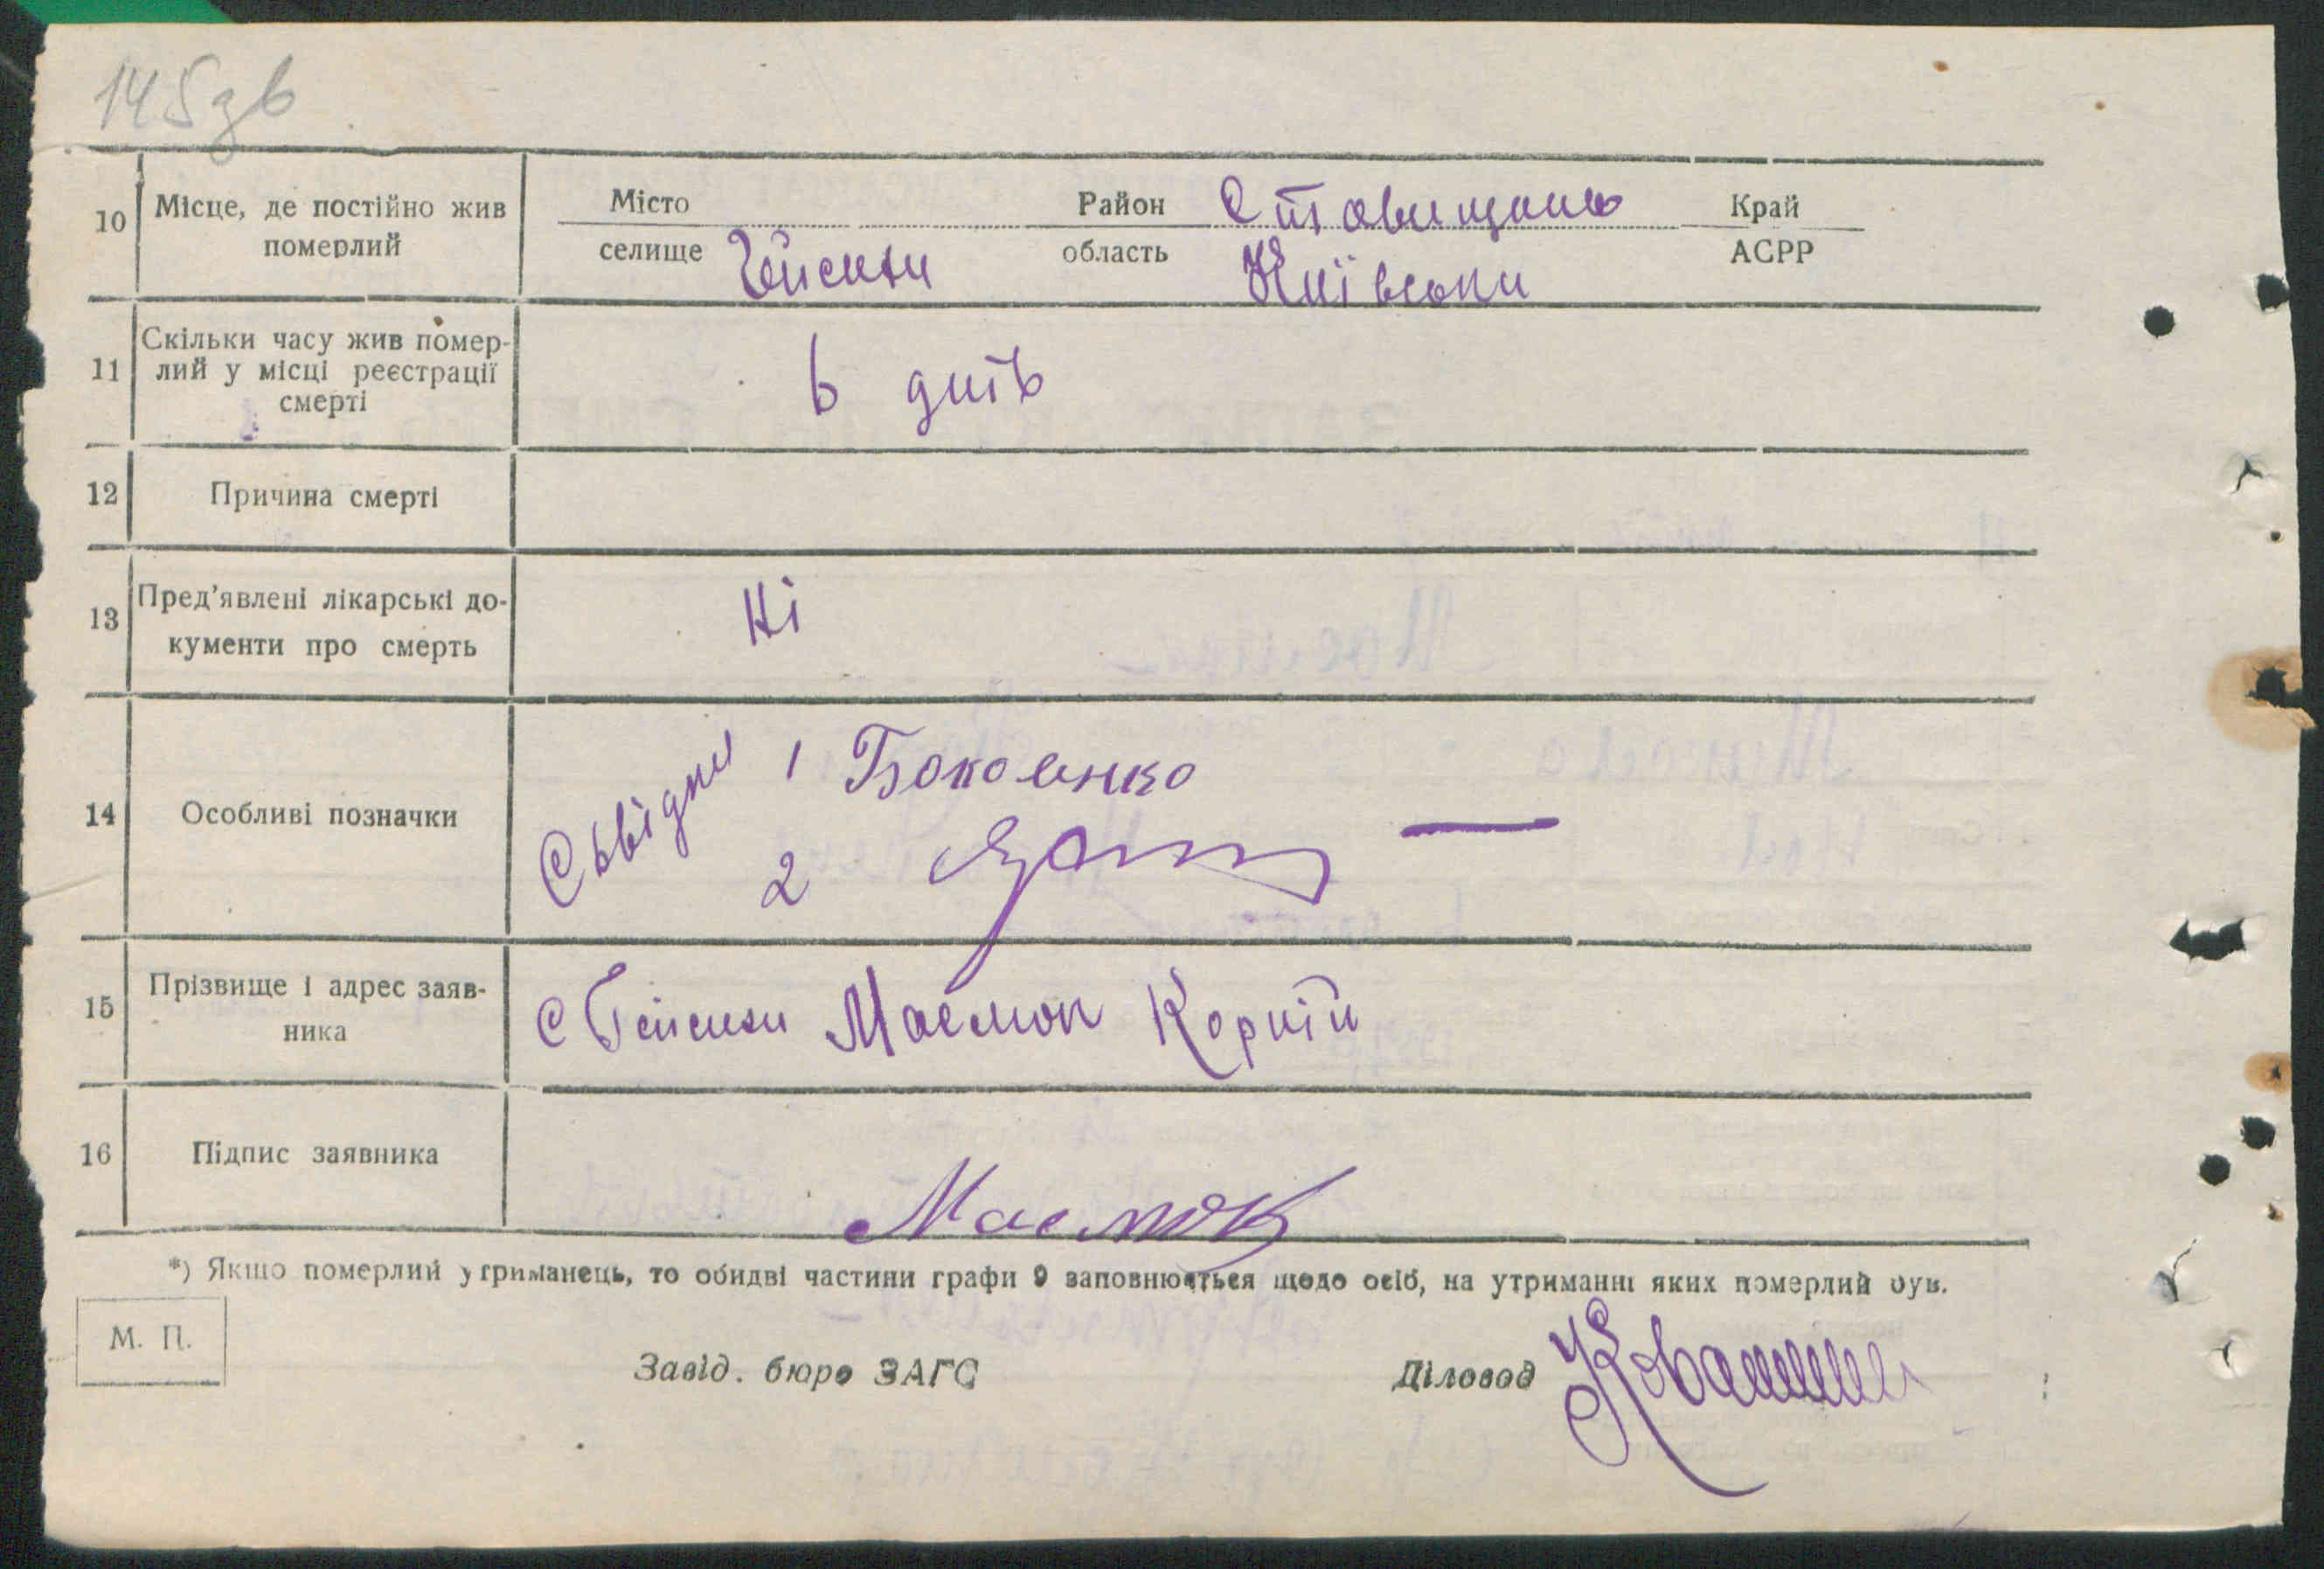 145зв
10 Місце, де постійно жив померлий
Місто Район Ставищань Край
селище Гейсихи область Київськи АСРР
11 Скільки часу жив помер-
лий у місці реєстрації
смерті
6 днів
12 Причина смерті
13 Пред'явлені лікарські до-
кументи про смерть
Ні
14 Особливі позначки
Сьвідки 1 Боколенко
2
15 Прізвище і адрес заяв-
ника
с Гейсихи Маємон Корній
16 Підпис заявника
*) Якщо померлий утриманець, то обидві частини графи 9 заповнюються щодо осіб, на утриманні яких померлий був.
М. П.
Завід. бюро ЗАГС Діловод